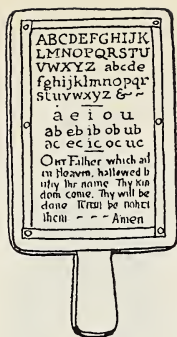 ABCDEFGHIJK
LMNOPQRSTU
VWXYZ abcde
fghijklmnopqr
stuvwxyz &
a e i o u
ab eb ib ob ub
ac ec ic oc uc
Our Father which art
in Heaven, hallowed b
thy name Thy Kin
dom come, Thy will be
done
them - - - Amen